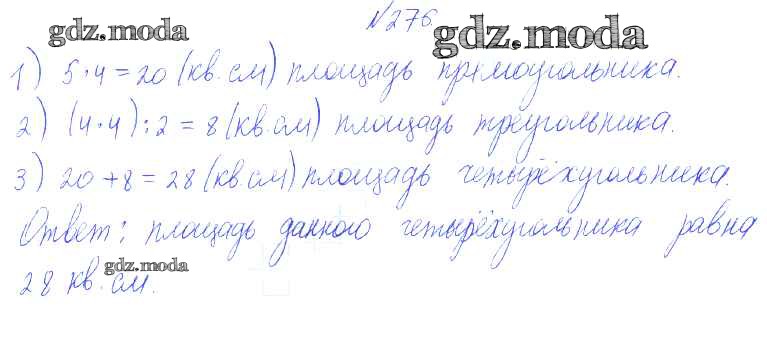 №276.
gdz.moda
gdz.moda
1) 5·4=20 (кв.см) площадь прямоугольника.
2) (4·4):2=8 (кв.см) площадь треугольника.
3) 20+8=28 (кв.см) площадь четырёхугольника.
Ответ: площадь данного четырёхугольника равна
gdz.moda
28 кв.см.